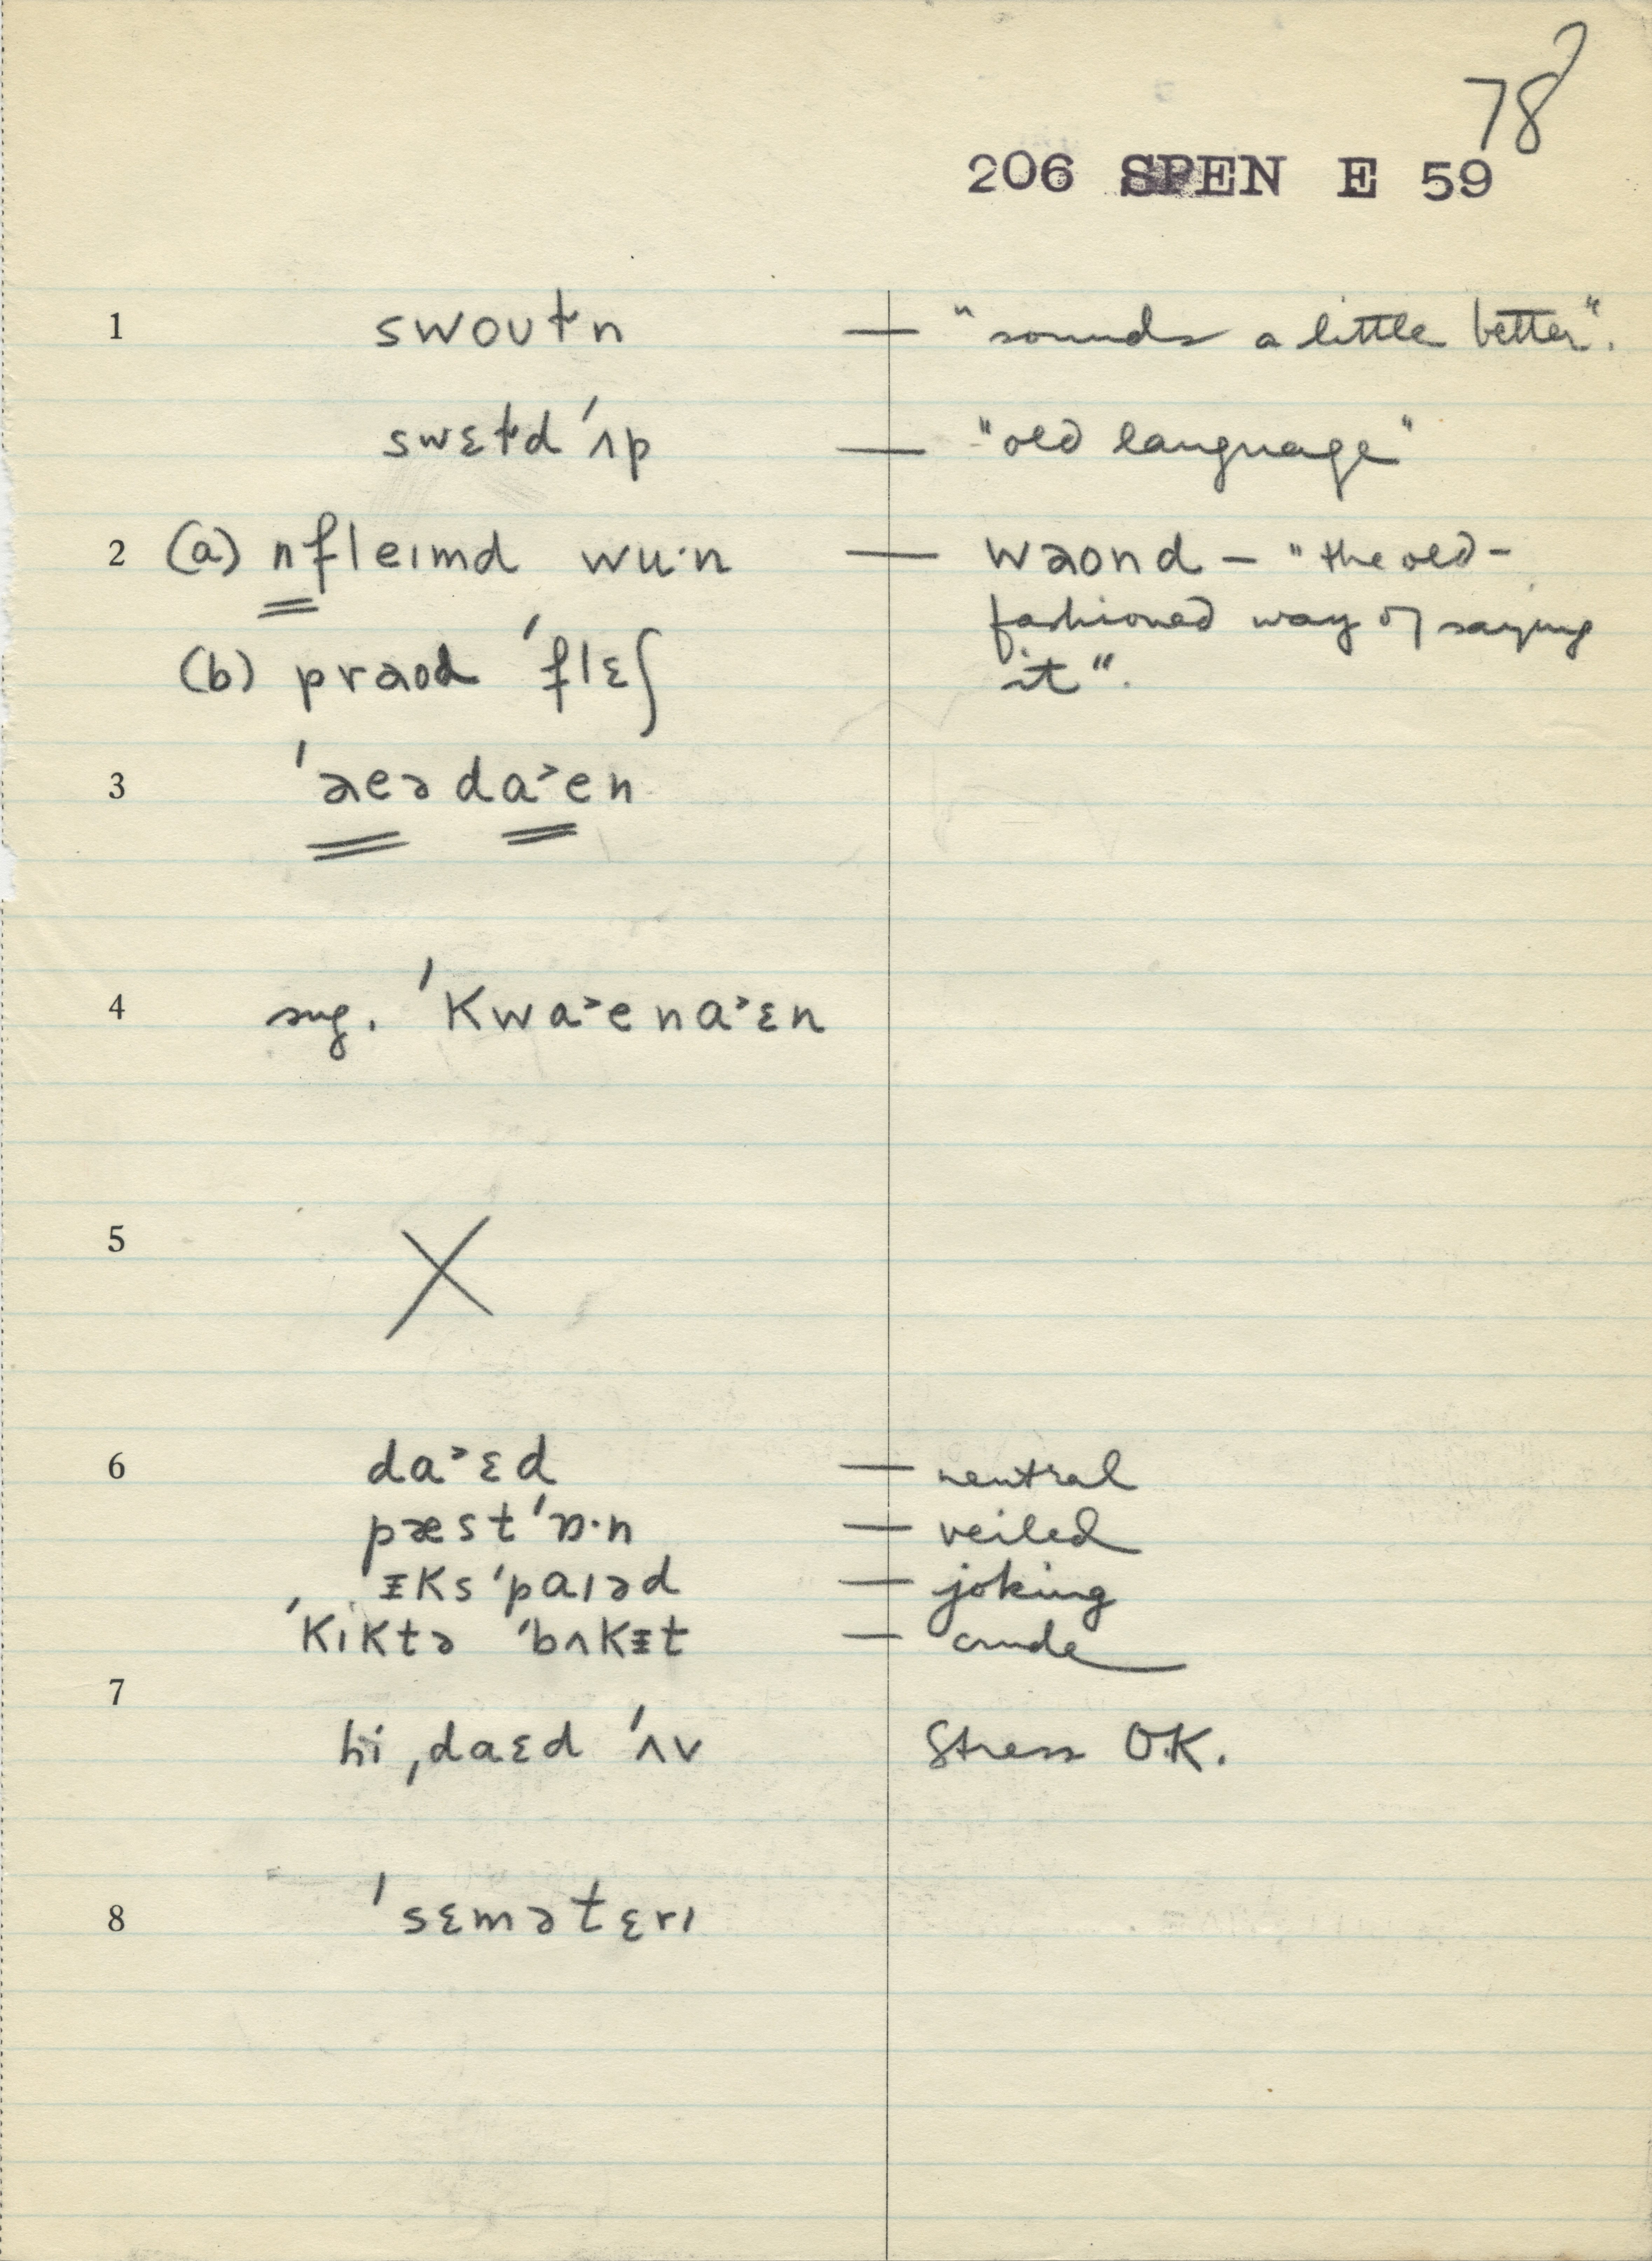 78
206 SPEN E 59
1 swoʊt̬n — "sounds a little better".
swɛt̬d ˈʌp — "old language"
2 (a) nfleɪmd wu·n — wəond — "the old-
fashioned way of saying
(b) prəod ˈflɛʃ it".
3 ˈæeə da˃en
4 sug. ˈkwa˃ena˃ɛn
5 X
6 da˃ɛd — neutral
pæst ˈɒ·n — veiled
ɪks ˈpaɪəd — joking
ˈkɪktə ˈbʌkɪt — crude
7
hi ˌdaɛd ˈʌv Stress O.K.
8 ˈsɛmətɛrɪ